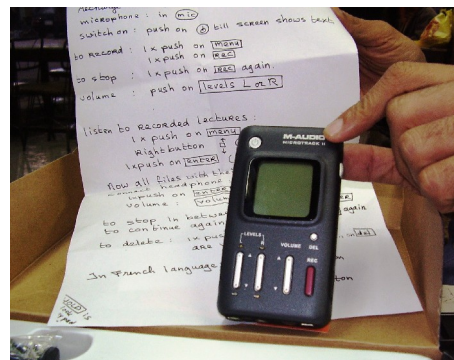 microphone : in mic
switch on : push on till screen shows text.
to RECORD : 1x push on menu
1x push on REC
to stop : 1x push on REC again.
volume : push on levels L or R
listen to RECORDED Lectures :
1x push on menu
Right button
1xpush on enter
Now all files with the
headphone
push on enter
volume : volu
to stop in betw again
to continue again
to delete : 1x pus del
are
In French language ton
M-AUDIO
MICROTRACK II
LEVELS
L R
VOLUME DEL
REC